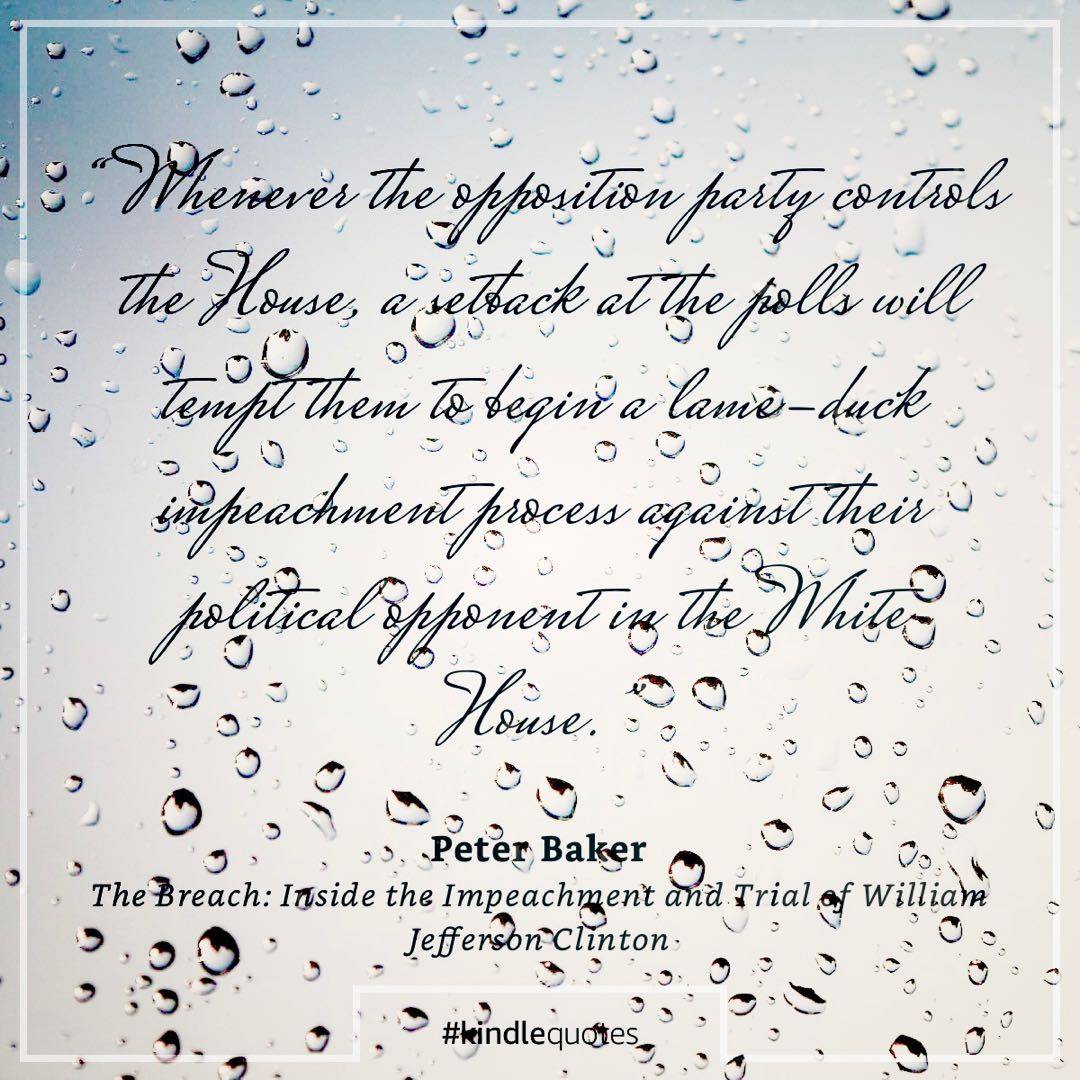 “Whenever the opposition party controls
the House, a setback at the polls will
tempt them to begin a lame-duck
impeachment process against their
political opponent in the White
House. ”
Peter Baker
The Breach: Inside the Impeachment and Trial of William
Jefferson Clinton
#kindlequotes